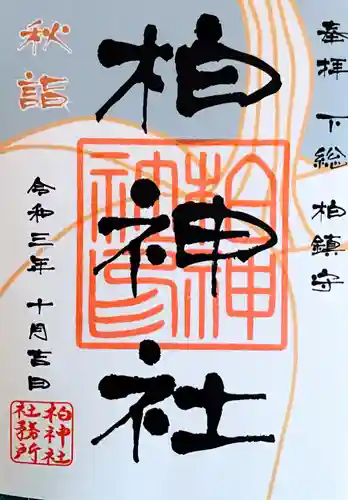 奉拝 下総 柏鎮守
柏神社
柏神
神印
秋詣
令和三年 十月吉日
柏神社
社務所